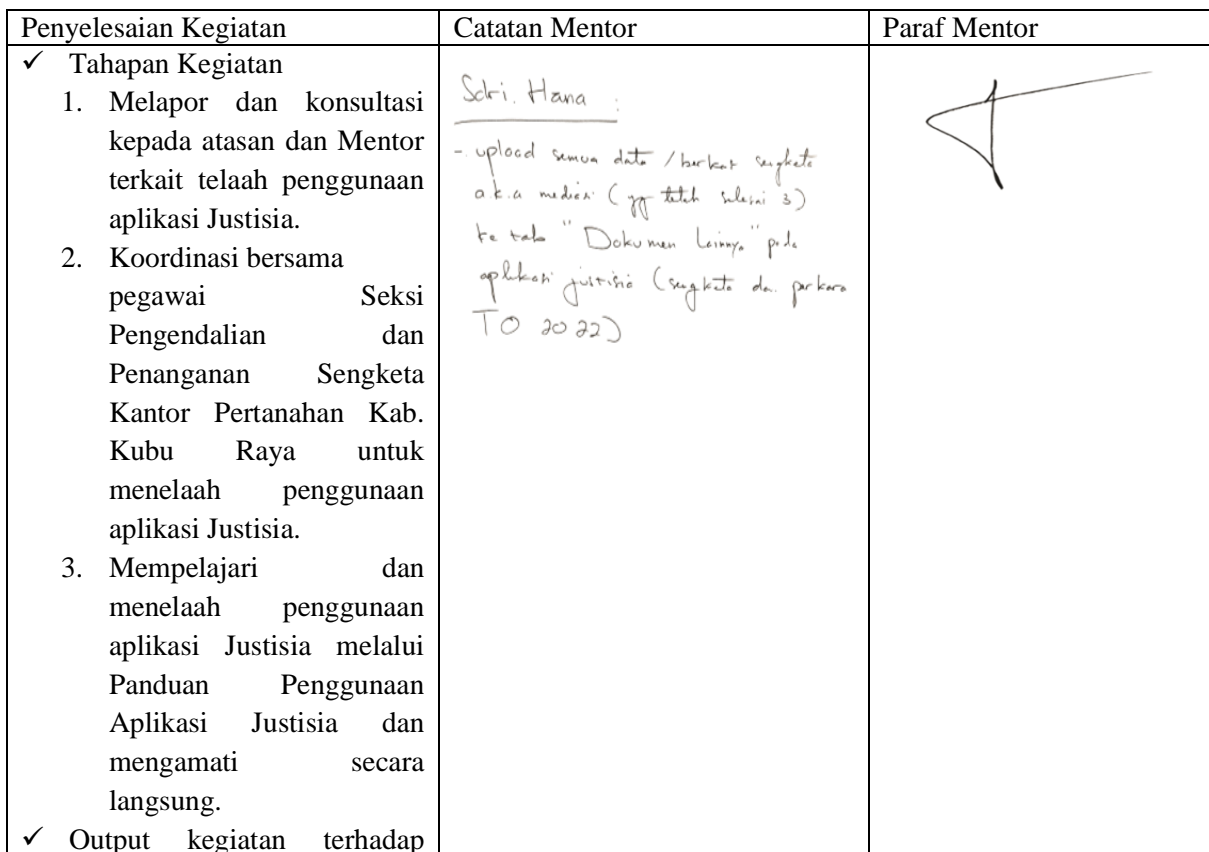 Penyelesaian Kegiatan
Catatan Mentor
Paraf Mentor
✓ Tahapan Kegiatan
1. Melapor dan konsultasi
kepada atasan dan Mentor
terkait telaah penggunaan
aplikasi Justisia.
2. Koordinasi bersama
pegawai Seksi
Pengendalian dan
Penanganan Sengketa
Kantor Pertanahan Kab.
Kubu Raya untuk
menelaah penggunaan
aplikasi Justisia.
3. Mempelajari dan
menelaah penggunaan
aplikasi Justisia melalui
Panduan Penggunaan
Aplikasi Justisia dan
mengamati secara
langsung.
✓ Output kegiatan terhadap
Sdri. Hana :
- upload semua data / berkas sengketa
a.k.a mediasi (yg telah selesai 3)
ke tab "Dokumen Lainnya" pada
aplikasi justisia (sengketa dan perkara
TO 2022)